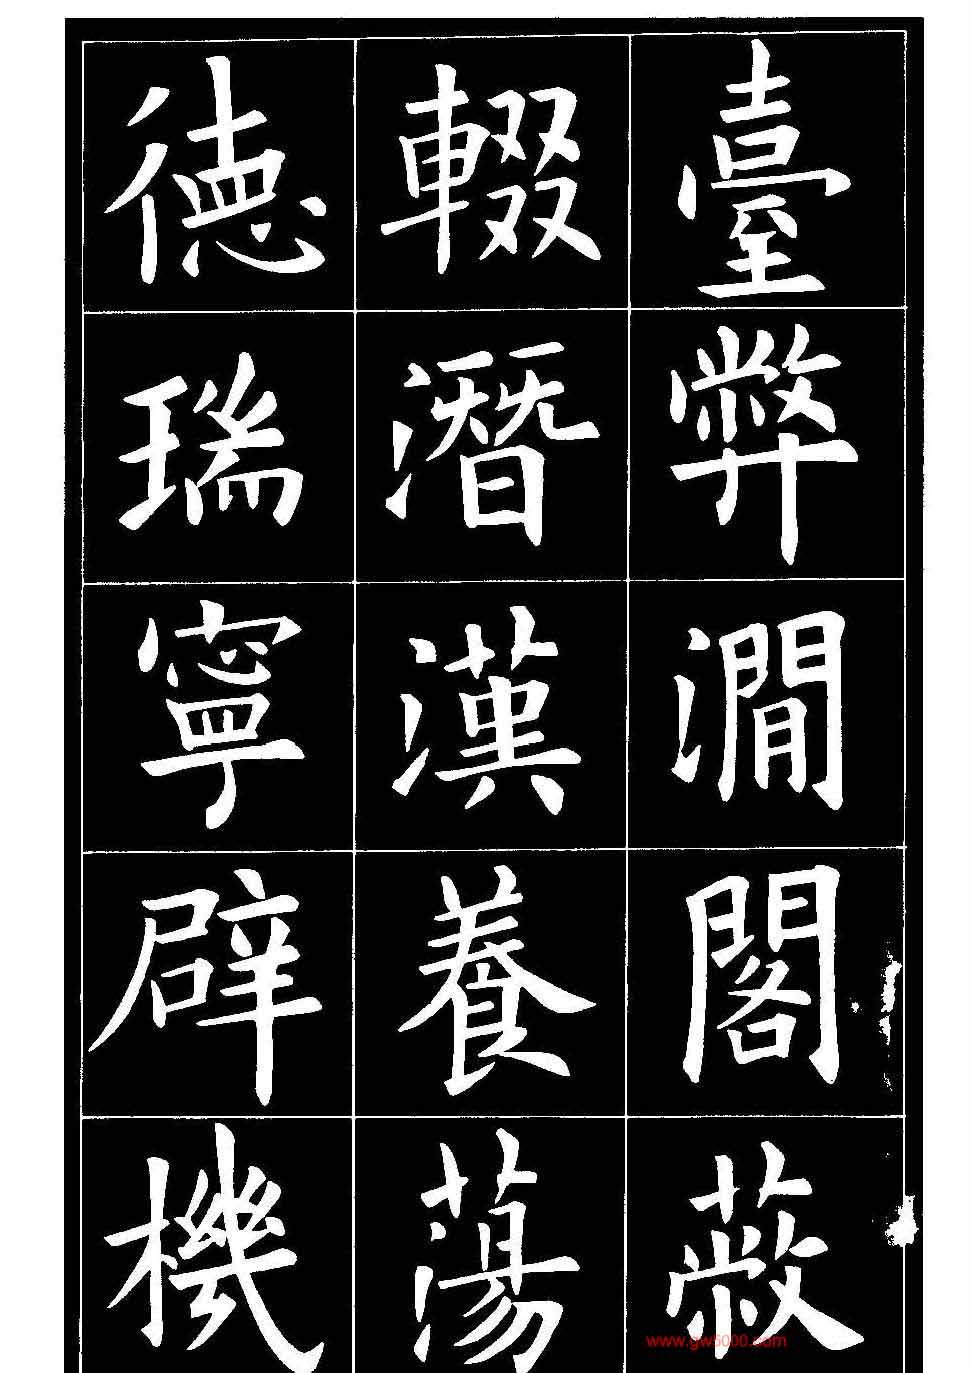 臺弊澗閣蔽
輟潛漢養蕩
德瑞寧辟機
www.gw5000.com